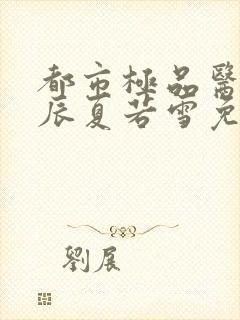 都市極品醫
辰夏若雪免
劉展